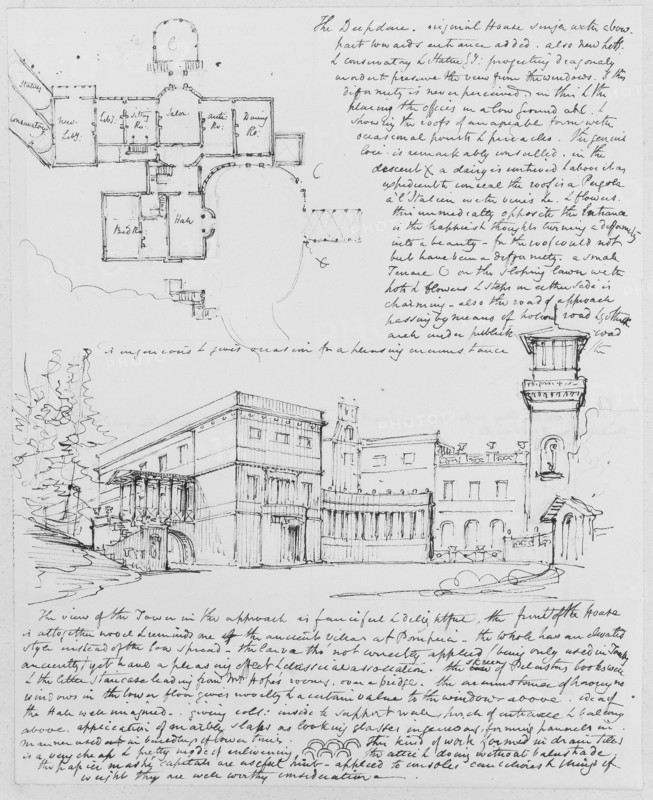 The Deepdene. original House
part towards entrance added. also new
& conservatory & Statue projecting diagonaly
in order to preserve the view from the windows.
deformity is never perceived. in this & the
placing the offices in a low ground
showing the roofs of an agreable form with
occasional points & pinacles. The genius
loci is remarkably consulted. in the
descent a dairy is
expedient to conceal the roof is a Pergola
a l'Italien with vines &c. & flowers.
this immediatly opposite the Entrance
is the happiest thought turning a deformity
into a beauty - for the roof could not
but have been a deformity. a small
Terrace on the sloping lawn with
& flowers & steps on either side is
charming - also the road of approach
passing by means of hollow road & Gothick
arch under publick road
is ingenious & gives occasion for a pleasing circumstance
C
Statues
Conservatory
New Liby.
Liby.
Sitting Ro:
Salon
anti Ro:
Dining Ro:
C
Bed Ro.
Hall
The view of the Tower in the approach is fanciful & delightful. the front of the House
is altogether novel & reminds me of the ancient villas at Pompeii - the whole has an elevated
style instead of the low spread - the tho' not correctly applied (being only used in
anciently) yet have a pleasing effect & classical association. the Pilasters look well
& the little staircase leading from Mr Hopes rooms. over a bridge. the circumstance of having no
windows in the lower floor gives novelty & a certain value to the windows above. idea of
the Hall well imagined. giving cols: inside to support wall & porch of entrance & balcony
above. application of marble slabs as looking glasses ingenious forming pannels in
manner used in
is a very cheap & pretty mode of enlivening this kind of work formed in drain tiles
the attic & doing without balustrade.
the papier mashy capitals are useful hint - applied to consoles candelabras & things of
weight they are well worthy consideration